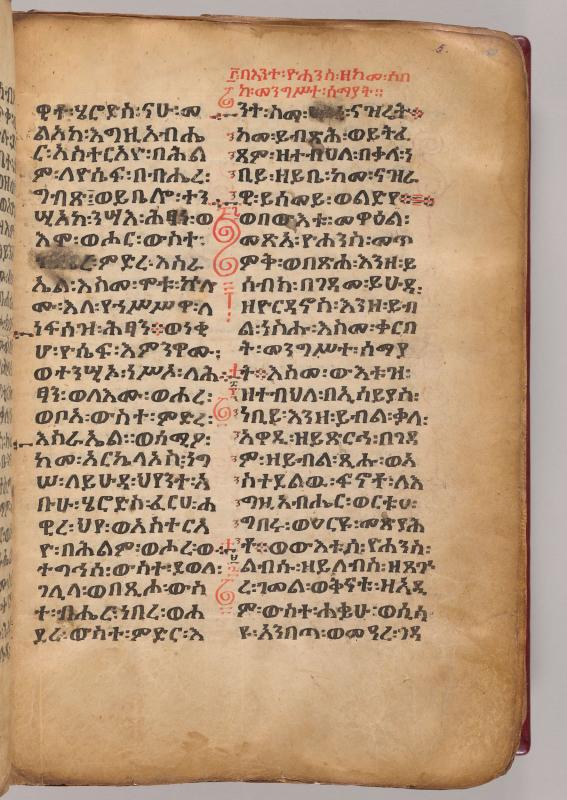 ፫በእንተ፡ዮሐንስ፡ዘከመ፡ሰበ
ከ፡መንግሥተ፡ሰማያት።
ዊቶ፡ሄሮድስ፡ናሁ፡መ
ልአከ፡እግዚአብሔ
ር፡አስተርአዮ፡በሕል
ም፡ለዮሴፍ፡በብሔረ፡
ግብጽ፡ወይቤሎ፡ተን
ሢአከ፡ንሣእ፡ሕፃነ፡ወ
እሞ፡ወሖር፡ውስተ፡
ምድረ፡እስራ
ኤል፡እስመ፡ሞቱ፡ኵሉ
ሙ፡እለ፡የኀሥሥዋ፡ለ
ነፍሰዝ፡ሕፃን፡ወነቂ
ሆ፡ዮሴፍ፡እምንዋሙ፡
ወተንሢኦ፡ነሥአ፡ለሕ
ፃን፡ወለእሙ፡ወሖረ፡
ወቦአ፡ውስተ፡ምድረ፡
እስራኤል።ወሰሚዖ፡
ከመ፡አርኬላአስ፡ነግ
ሠ፡ለይሁዳ፡ህየንተ፡አ
ቡሁ፡ሄሮድስ፡ፈርሀ፡ሐ
ዊረ፡ህየ፡ወአስተርአ
ዮ፡በሕልም፡ወሖረ፡ወ
ተግኅሠ፡ውስተ፡ደወለ፡
ገሊላ፡ወበጺሖ፡ውስ
ተ፡ብሔር፡ነበረ፡ወሐ
ደረ፡ውስተ፡ምድር፡እ
ንተ፡ስማ፡ናዝሬት
ከመ፡ይብጻሕ፡ወይትፈ
ጸም፡ዘተብህለ፡በቃለ፡ነ
ቢይ፡ዘይቤ፡ከመ፡ናዝራ
ዊ፡ይሰመይ፡ወልድየ
ወበውእቱ፡መዋዕል፡
መጽአ፡ዮሐንስ፡መጥ
ምቅ፡ወበጽሐ፡እንዘ፡ይ
ሰብክ፡በገዳመ፡ይሁዳ፡
ዘዮርዳኖስ፡እንዘ፡ይብ
ል፡ነስሑ፡እስመ፡ቀርበ
ት፡መንግሥተ፡ሰማያ
ት።እስመ፡ውእቱ፡ዝ፡
ዘተብህለ፡በኢሳይያስ፡
ነቢይ፡እንዘ፡ይብል፡ቃለ፡
አዋዲ፡ዘይጸርኅ፡በገዳ
ም፡ዘይብል፡ጺሑ፡ወአ
ስተደልዉ፡ፍኖቶ፡ለእ
ግዚአብሔር፡ወርቱዐ፡
ግበሩ፡ወዐርዩ፡መጽያሕ
ቶ።ወውእቱሰ፡ዮሐንስ፡
ልብሱ፡ዘይለብስ፡ዘጸጕ
ረ፡ገመል፡ወቅናቱ፡ዘአዲ
ም፡ውስተ፡ሐቌሁ፡ወሲሳ
ዩ፡አንበጣ፡ወመዓረ፡ገዳ